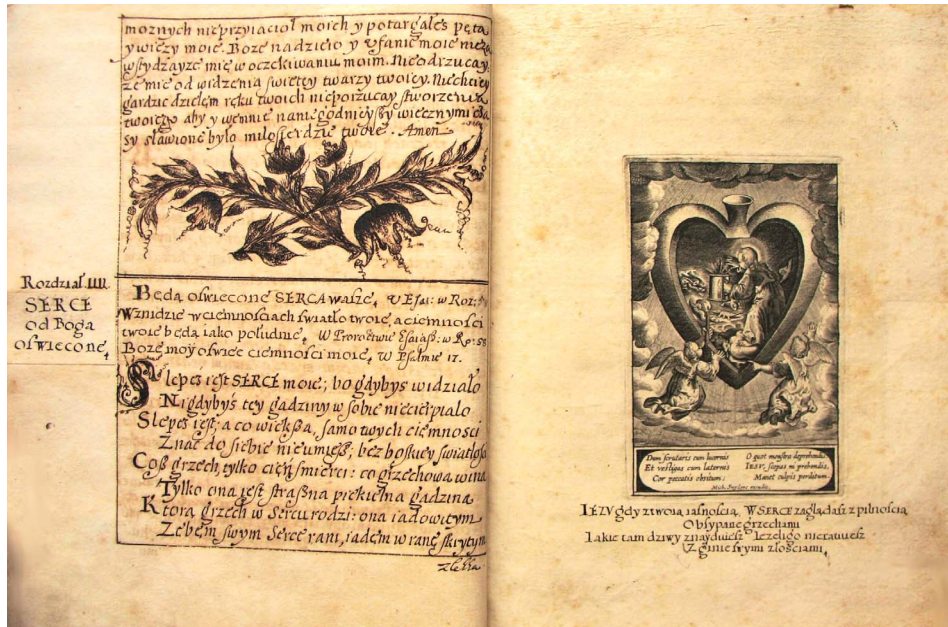 moznych nieprzyiacioł moich y potargałes pęta
y więzy moie. Boze nadzieio y ufanie moie nieza
wstydzayze mię w oczekiwaniu moim. Nieodrzucay
ze mie od widzenia swiętey twarzy twoiey. Niechciey
gardzic dziełem ręku twoich nieporzucay stworzenia
twoiego aby y wemnie naniegodnieyszy wiecznymi cza
sy sławione było miłosierdzie twoie. Amen
Rozdział. IIII.
SERCE
od Boga
oswiecone,
Będą oswiecone SERCA wasze, U Efai: w Roz:
Wznidzie w ciemnosciach swiatło twoie, a ciemnosci
twoie będą iako południe, W Proroctwie Esaiasz: w Ro: 58
Boze moy oswiec ciemnosci moie, W Psalmie 17.
Slepeś iest SERCE moie; bo gdybys widziało
Nigdybyś tey gadziny w sobie niecierpiało
Slepeś iest; a co większa, samo twych ciemnosci
Znac do siebie nieumiesz, bez boskiey swiatłosci
Coß grzech, tylko cięń smierci: co grzechowa wina
Tylko ona iest straszna piekielna gadzina
Ktora grzech w sercu rodzi: ona iadowitym
Zębem swym Serce rani, iadem w ranę skrytym
Dum scrutaris cum lucernis
Et vestigas cum laternis
Cor peccatis obsitum:
O quot monstra deprehendis
IESV, scopas ni prehendis,
Manet culpis perditum.
IEZU gdy z twoią iasnoscią, W SERCE zaglądasz z pilnoscią
Obsypane grzechami
Iakie tam dziwy znayduiesz Iezeli go nieratuiesz
Zginie swymi złosciami,